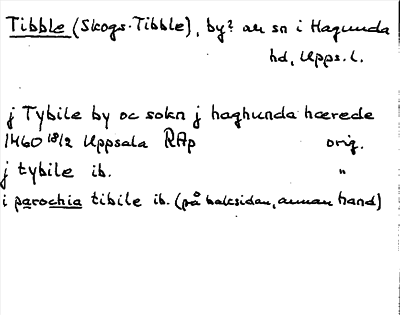 Tibble (Skogs-Tibble), by? av sn i Hagunda
hd, Upps. l.
j Tybile by oc sokn j haghunda hærede
1460 18/2 Uppsala RAp orig.
j tybile ib. "
i parochia tibile ib. (på baksidan, annan hand)